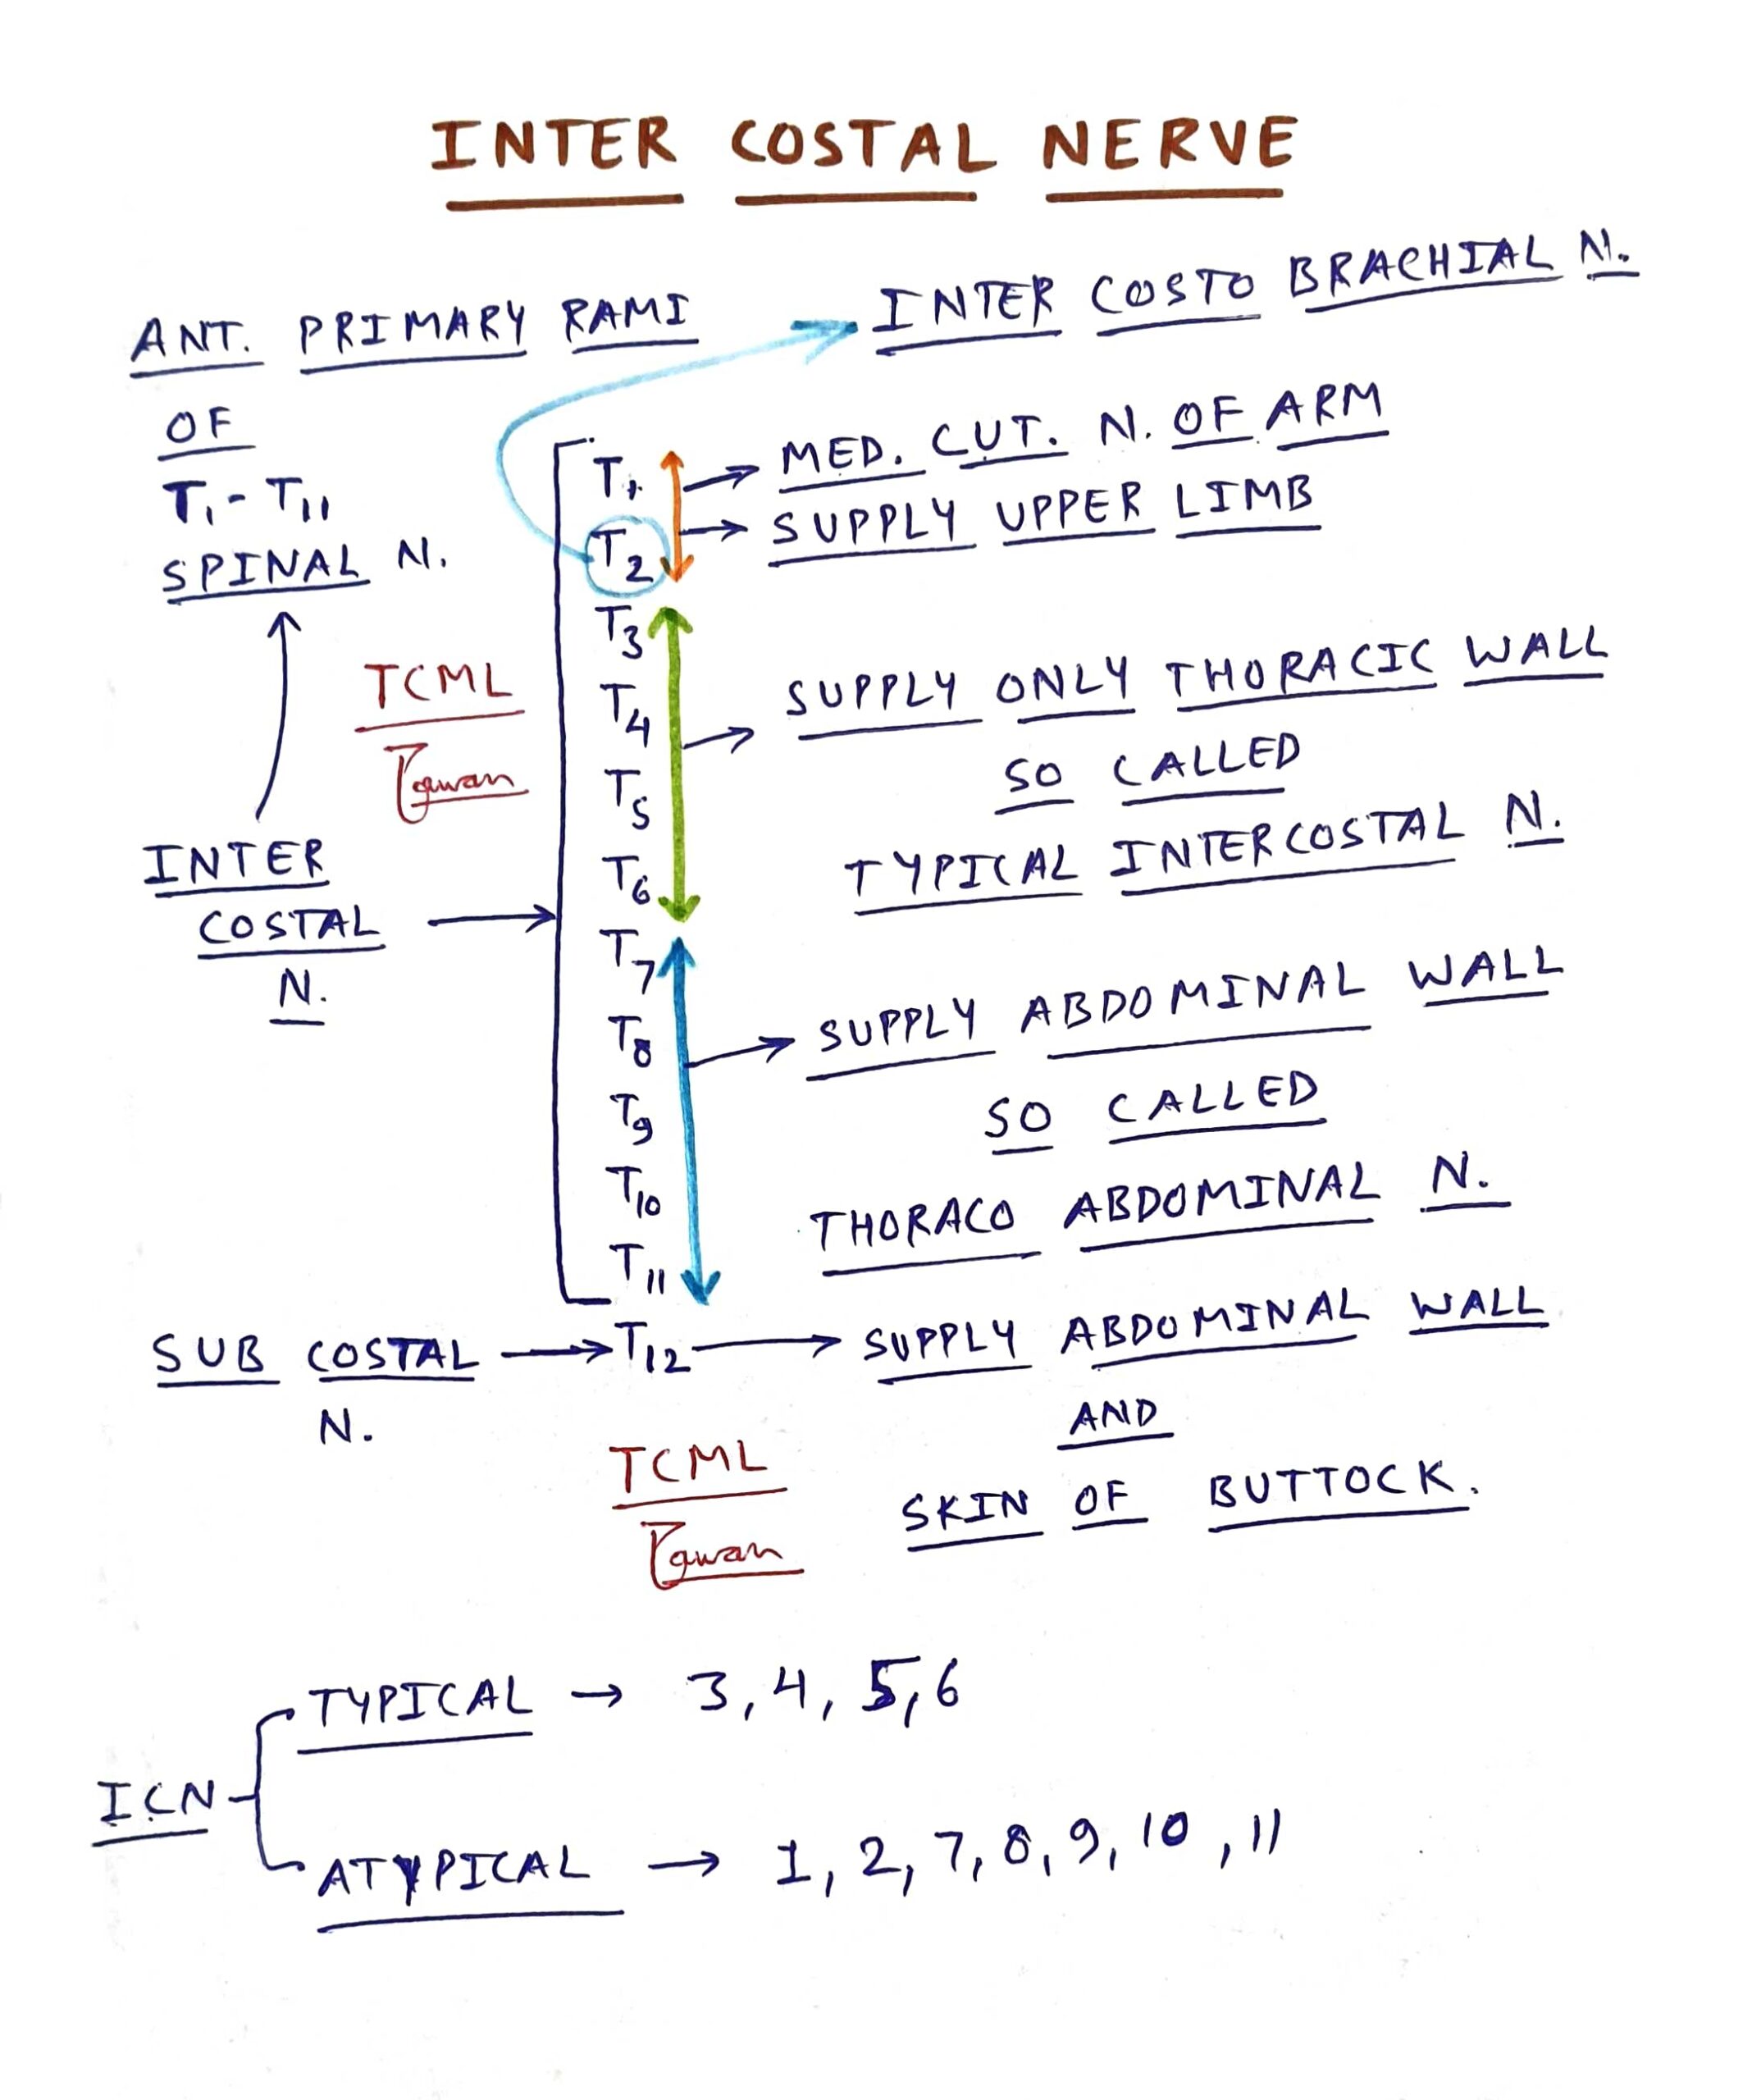 INTER COSTAL NERVE
ANT. PRIMARY RAMI
OF
T1 - T11
SPINAL N.
INTER COSTO BRACHIAL N.
T1
MED. CUT. N. OF ARM
T2
SUPPLY UPPER LIMB
T3
T4
T5
T6
SUPPLY ONLY THORACIC WALL
SO CALLED
TYPICAL INTERCOSTAL N.
TCML
Pawan
INTER
COSTAL
N.
T7
T8
T9
T10
T11
SUPPLY ABDOMINAL WALL
SO CALLED
THORACO ABDOMINAL N.
SUB COSTAL
N.
T12
SUPPLY ABDOMINAL WALL
AND
SKIN OF BUTTOCK.
TCML
Pawan
ICN
TYPICAL → 3, 4, 5, 6
ATYPICAL → 1, 2, 7, 8, 9, 10, 11